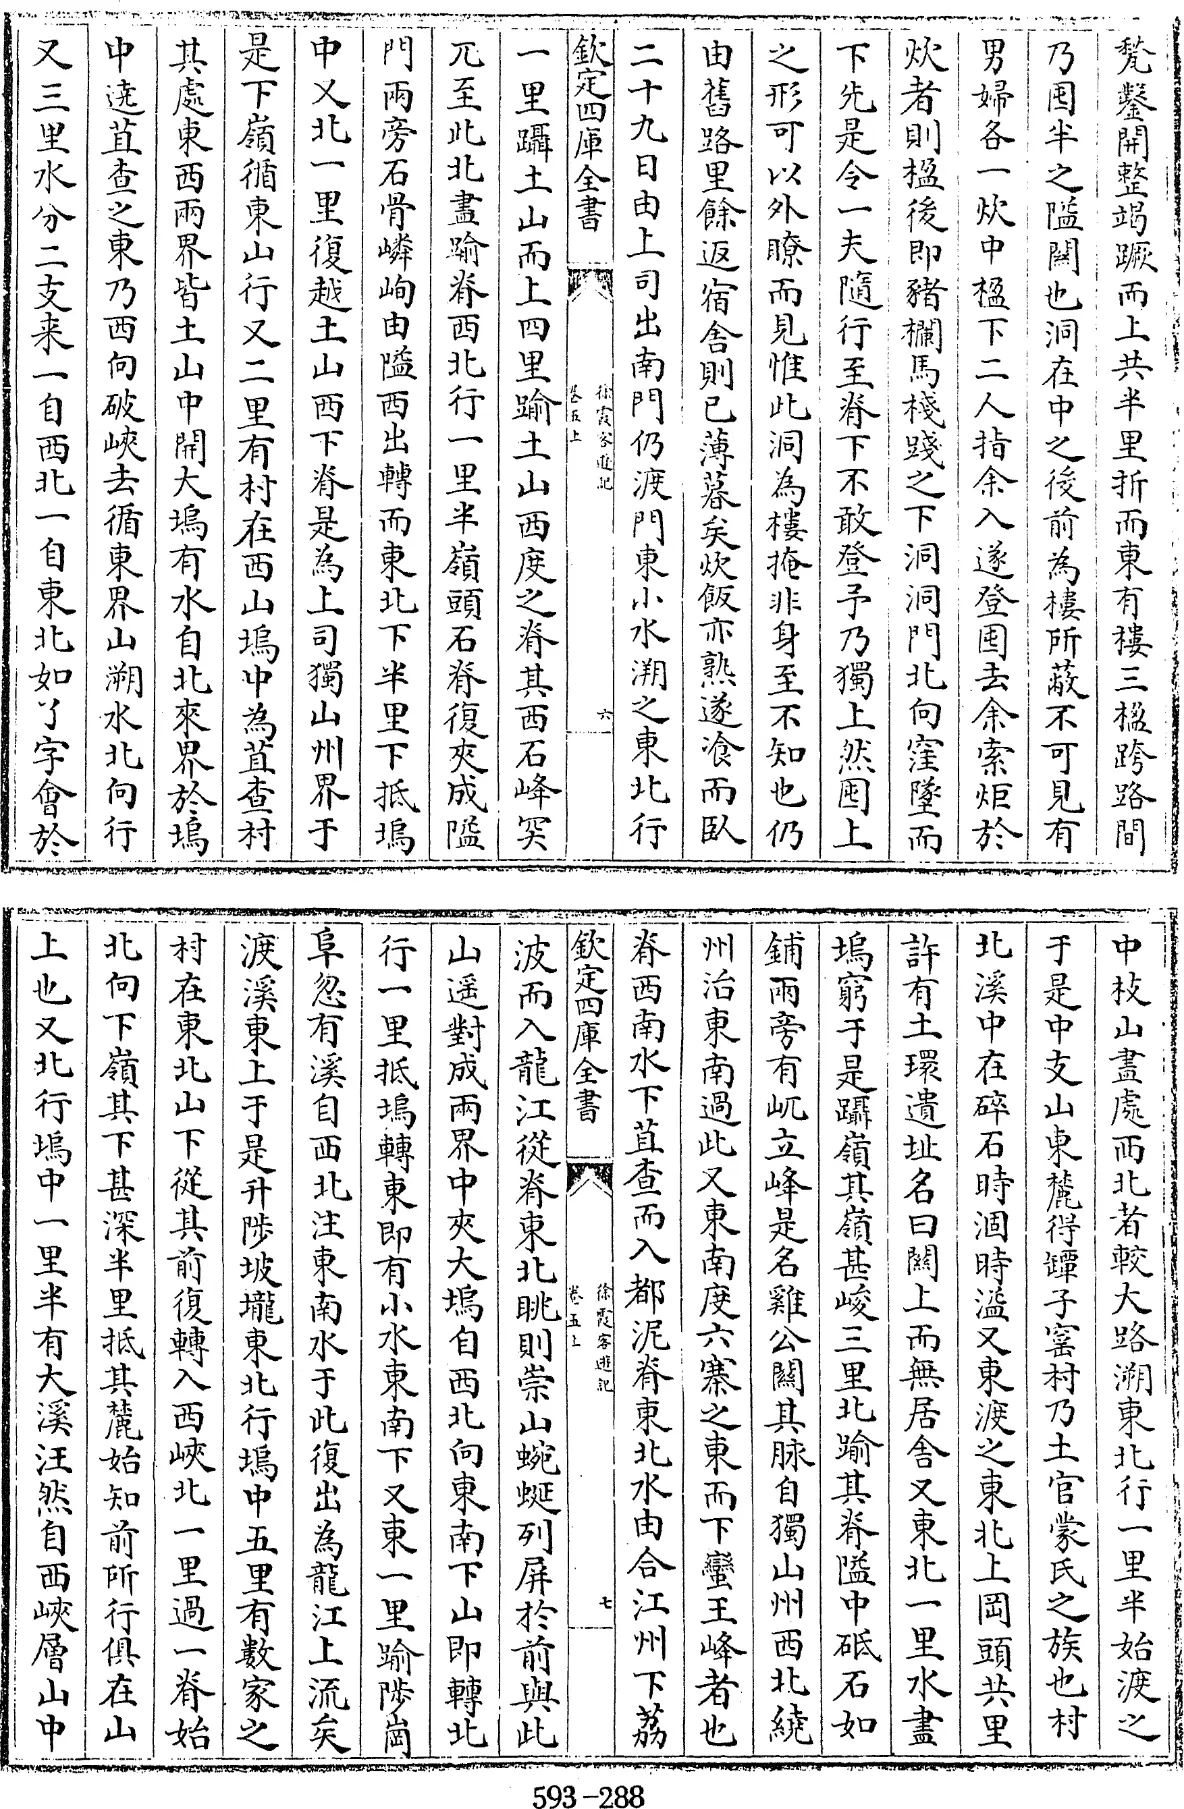 甃鑿開整竭蹶而上共半里折而東有樓三楹跨路間
乃囤半之隘關也洞在中之後前為樓所蔽不可見有
男婦各一炊中楹下二人指余入遂登囤去余索炬於
炊者則楹後即豬欄馬棧踐之下洞洞門北向窪墜而
下先是令一夫隨行至脊下不敢登予乃獨上然囤上
之形可以外瞭而見惟此洞為樓掩非身至不知也仍
由舊路里餘返宿舍則已薄暮矣炊飯亦熟遂飡而臥
二十九日由上司出南門仍渡門東小水溯之東北行
欽定四庫全書
徐霞客遊記
卷五上
六
一里躡土山而上四里踰土山西度之脊其西石峰突
兀至此北盡踰脊西北行一里半嶺頭石脊復夾成隘
門兩旁石骨嶙峋由隘西出轉而東北下半里下抵塢
中又北一里復越土山西下脊是為上司獨山州界于
是下嶺循東山行又二里有村在西山塢中為苴查村
其處東西兩界皆土山中開大塢有水自北來界於塢
中遶苴查之東乃西向破峽去循東界山溯水北向行
又三里水分二支来一自西北一自東北如丫字會於
中枝山盡處西北者較大路溯東北行一里半始渡之
于是中支山東麓得罈子窰村乃土官蒙氏之族也村
北溪中在碎石時涸時溢又東渡之東北上岡頭共里
許有土環遺址名曰關上而無居舍又東北一里水盡
塢窮于是躡嶺其嶺甚峻三里北踰其脊隘中砥石如
鋪兩旁有屼立峰是名雞公關其脉自獨山州西北繞
州治東南過此又東南度六寨之東而下蠻王峰者也
脊西南水下苴查而入都泥脊東北水由合江州下荔
欽定四庫全書
徐霞客遊記
卷五上
七
波而入龍江從脊東北眺則崇山蜿蜒列屏於前與此
山遥對成兩界中夾大塢自西北向東南下山即轉北
行一里抵塢轉東即有小水東南下又東一里踰陟崗
阜忽有溪自西北注東南水于此復出為龍江上流矣
渡溪東上于是升陟坡壠東北行塢中五里有數家之
村在東北山下從其前復轉入西峽北一里過一脊始
北向下嶺其下甚深半里抵其麓始知前所行俱在山
上也又北行塢中一里半有大溪汪然自西峽層山中
593-288